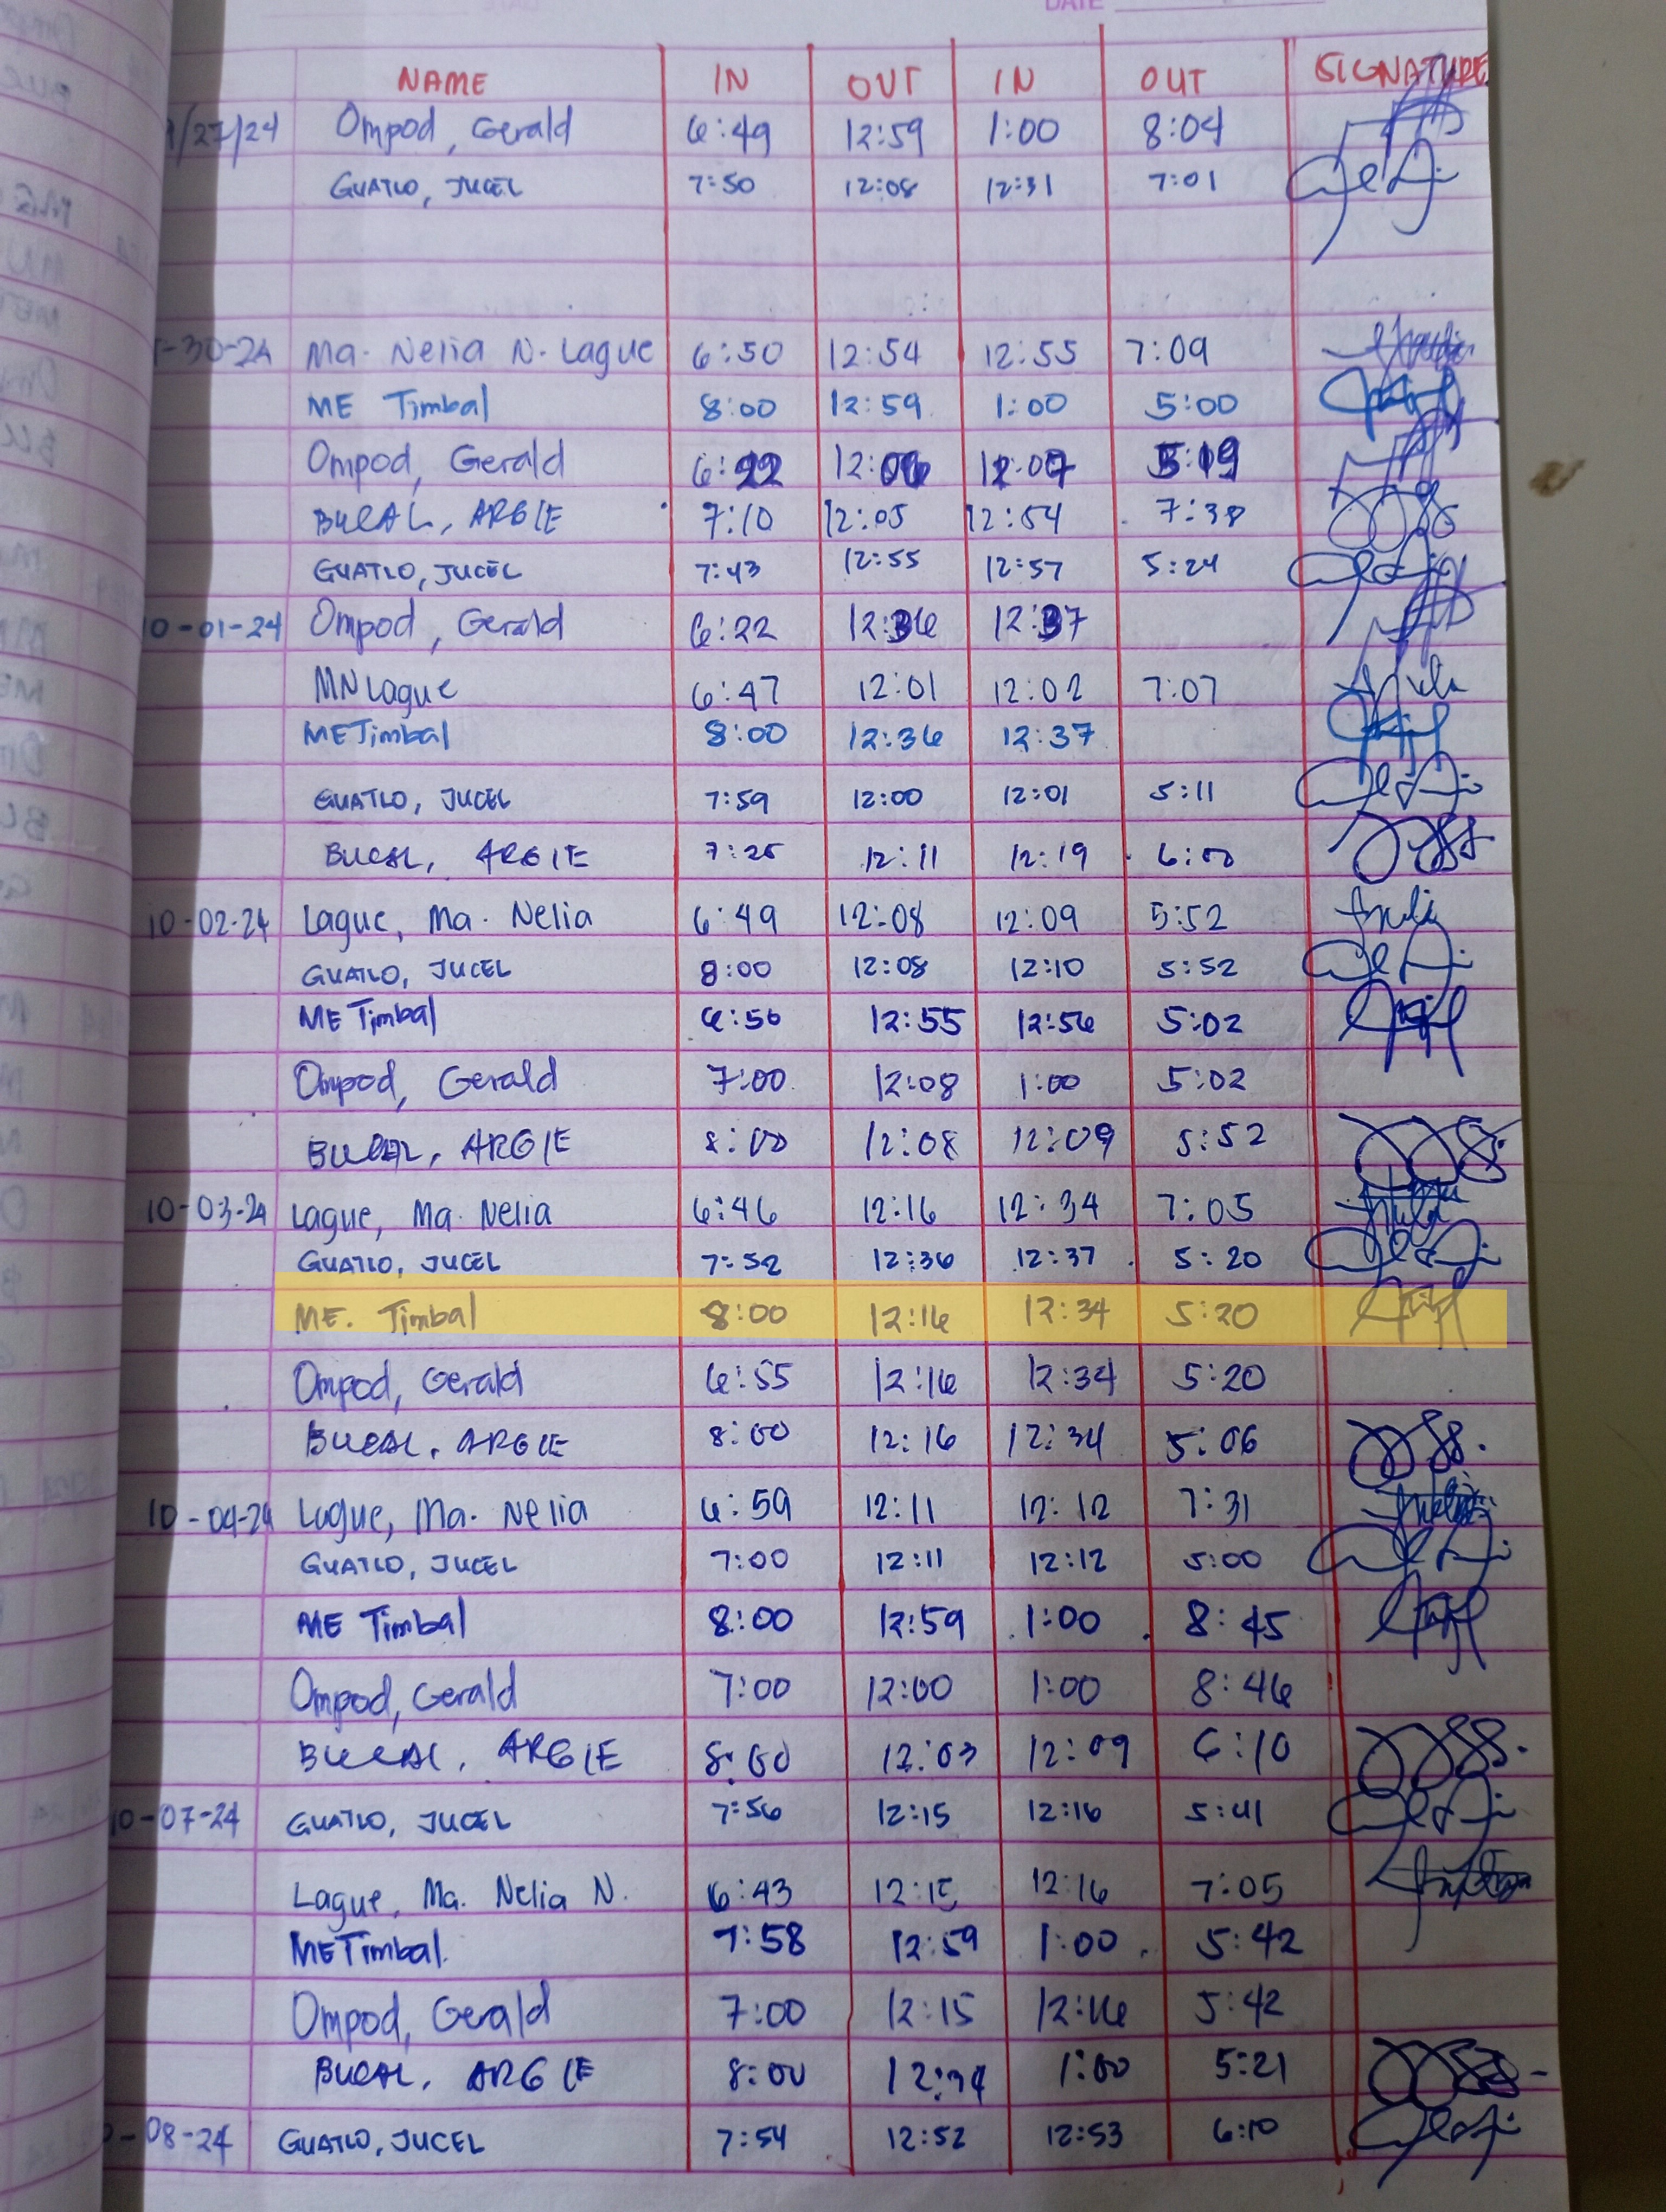 DATE
NAME IN OUT IN OUT SIGNATURE
9/27/24 Ompod, Gerald 6:49 12:59 1:00 8:04
GUATLO, JUCEL 7:50 12:08 12:31 7:01
-30-24 Ma. Nelia N. Lague 6:50 12:54 12:55 7:09
ME Timbal 8:00 12:59 1:00 5:00
Ompod, Gerald 6:22 12:06 12:07 5:19
BUCAL, ARGIE 7:10 12:05 12:54 7:38
GUATLO, JUCEL 7:43 12:55 12:57 5:24
10-01-24 Ompod, Gerald 6:22 12:36 12:37
MN Lague 6:47 12:01 12:02 7:07
ME Timbal 8:00 12:36 12:37
GUATLO, JUCEL 7:59 12:00 12:01 5:11
BUCAL, ARGIE 7:25 12:11 12:19 6:00
10-02-24 Lague, Ma. Nelia 6:49 12:08 12:09 5:52
GUATLO, JUCEL 8:00 12:08 12:10 5:52
ME Timbal 6:56 12:55 12:56 5:02
Ompod, Gerald 7:00 12:08 1:00 5:02
BUCAL, ARGIE 8:00 12:08 12:09 5:52
10-03-24 Lague, Ma. Nelia 6:46 12:16 12:34 7:05
GUATLO, JUCEL 7:52 12:36 12:37 5:20
ME. Timbal 8:00 12:16 12:34 5:20
Ompod, Gerald 6:55 12:16 12:34 5:20
BUCAL, ARGIE 8:00 12:16 12:34 5:06
10-04-24 Lague, Ma. Nelia 6:59 12:11 12:12 7:31
GUATLO, JUCEL 7:00 12:11 12:12 5:00
ME Timbal 8:00 12:59 1:00 8:45
Ompod, Gerald 7:00 12:00 1:00 8:46
BUCAL, ARGIE 8:00 12:03 12:09 6:10
10-07-24 GUATLO, JUCEL 7:56 12:15 12:16 5:41
Lague, Ma. Nelia N. 6:43 12:15 12:16 7:05
ME Timbal. 7:58 12:59 1:00 5:42
Ompod, Gerald 7:00 12:15 12:16 5:42
BUCAL, ARGIE 8:00 12:34 1:00 5:21
-08-24 GUATLO, JUCEL 7:54 12:52 12:53 6:10